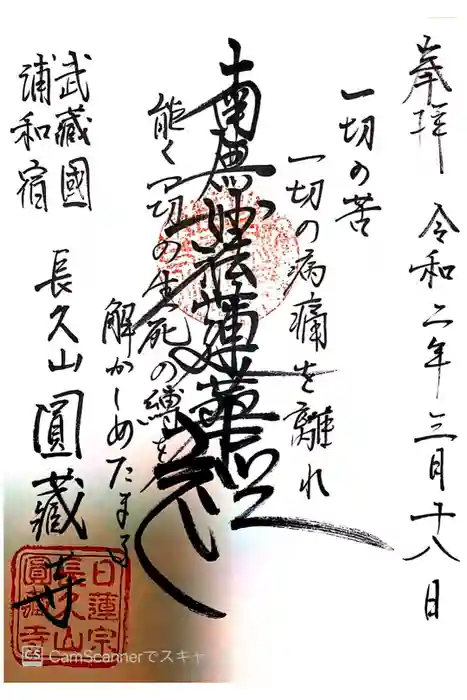 奉拝 令和二年三月十八日
一切の苦
一切の病痛を離れ
南無妙法蓮華経
能く一切の生死の縛を
解かしめたまる
武蔵國
浦和宿
長久山 圓藏寺
日蓮宗
長久山
圓藏寺
CS CamScannerでスキャ